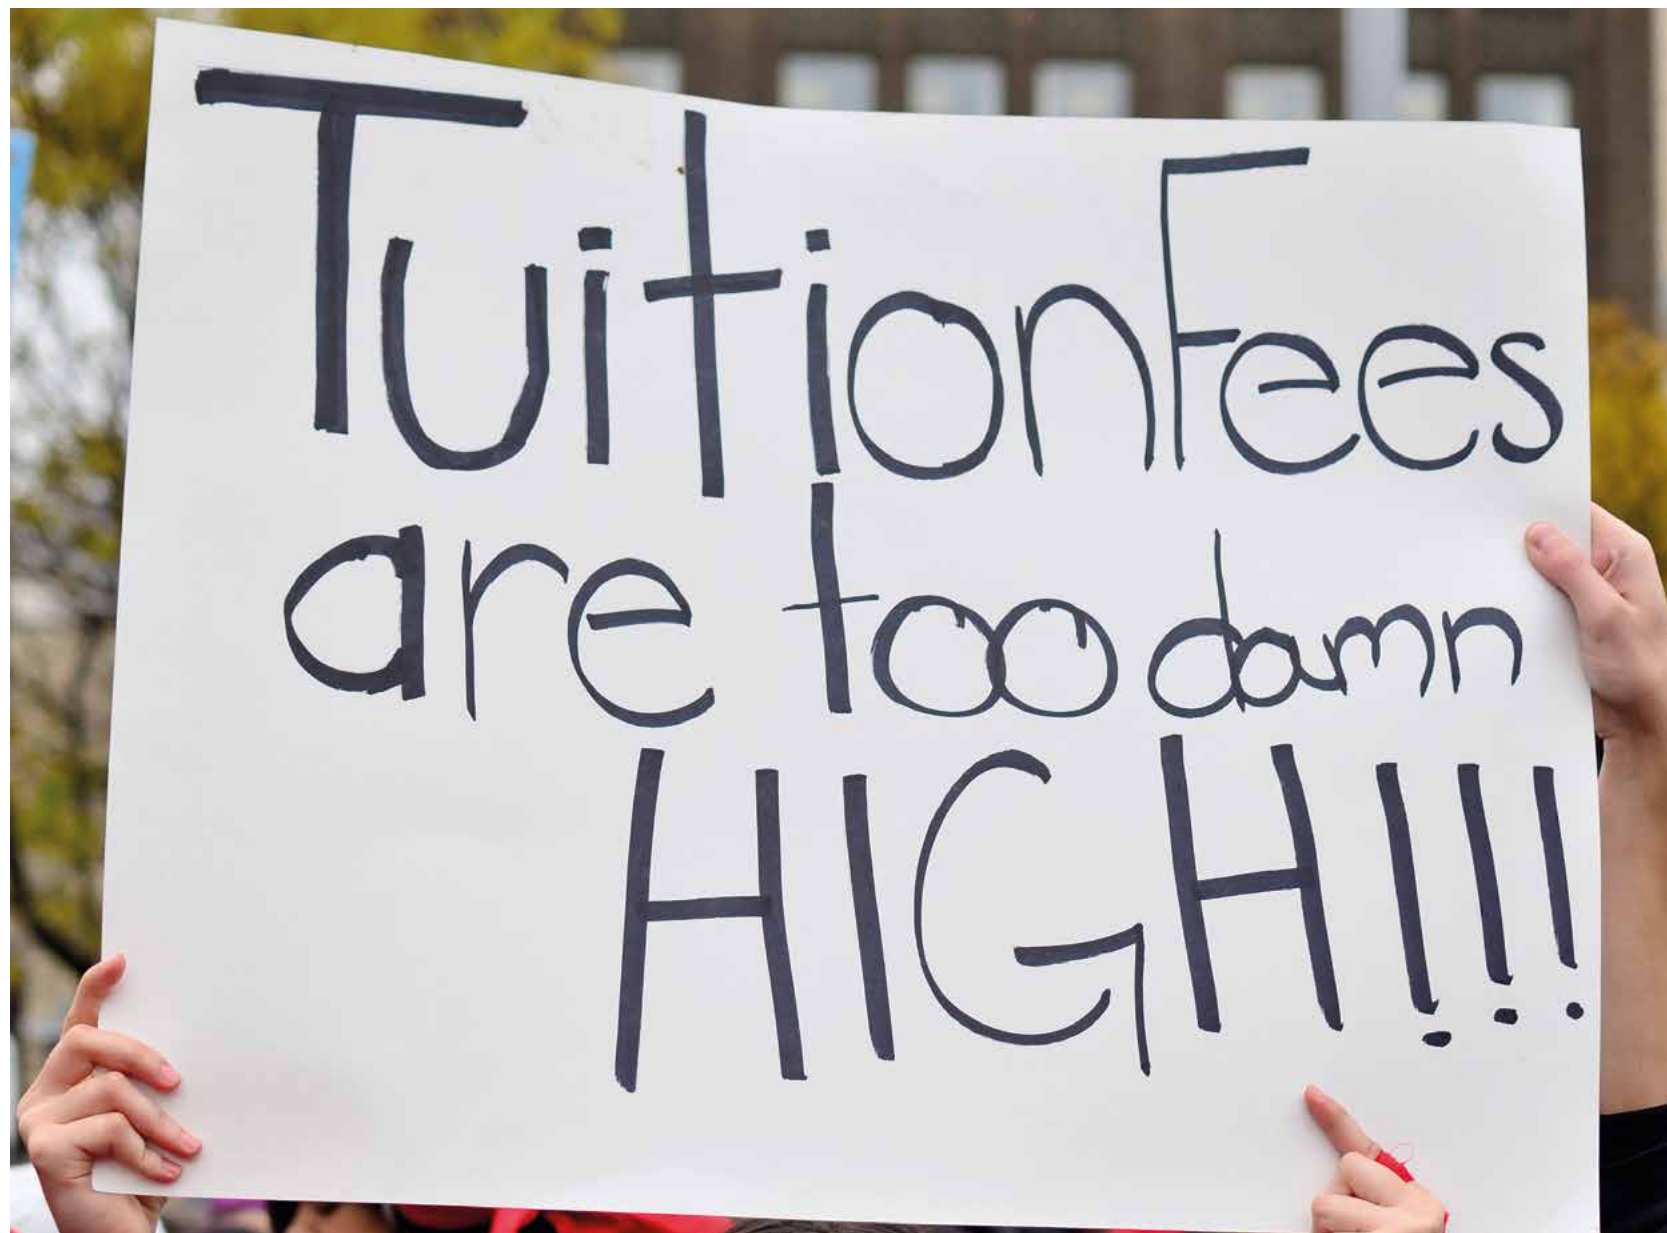 Tuition Fees
are too damn
HIGH!!!